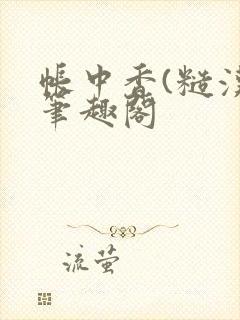 帐中香(糙汉
笔趣阁
流萤